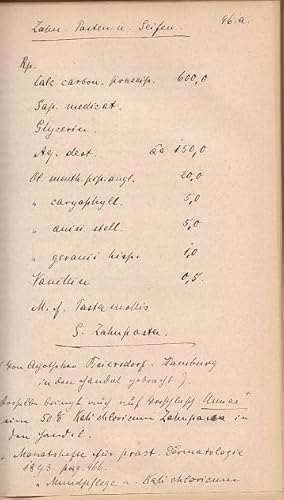 46.a.
Zahn-Pasten u. Seifen.
Rp.
Calc. carbon. praecip. 600,0
Sap. medicat.
Glycerin.
Aq. dest. āā 150,0
Ol. menth. pip. angl. 20,0
" caryophyll. 5,0
" anisi stell. 5,0
" geranii hisp. 1,0
Vanillin 0,5.
M. f. Pasta mollis
S. Zahnpasta.
(Von Apotheker Beiersdorf - Hamburg
in den Handel gebracht).
Derselbe bringt auch auf Vorschlag Unnas'
eine 50% Kali chloricum Zahnpasta in
den Handel.
" Monatshefte für pract. Dermatologie
1893 pag. 466.
" Mundpflege u. Kali chloricum